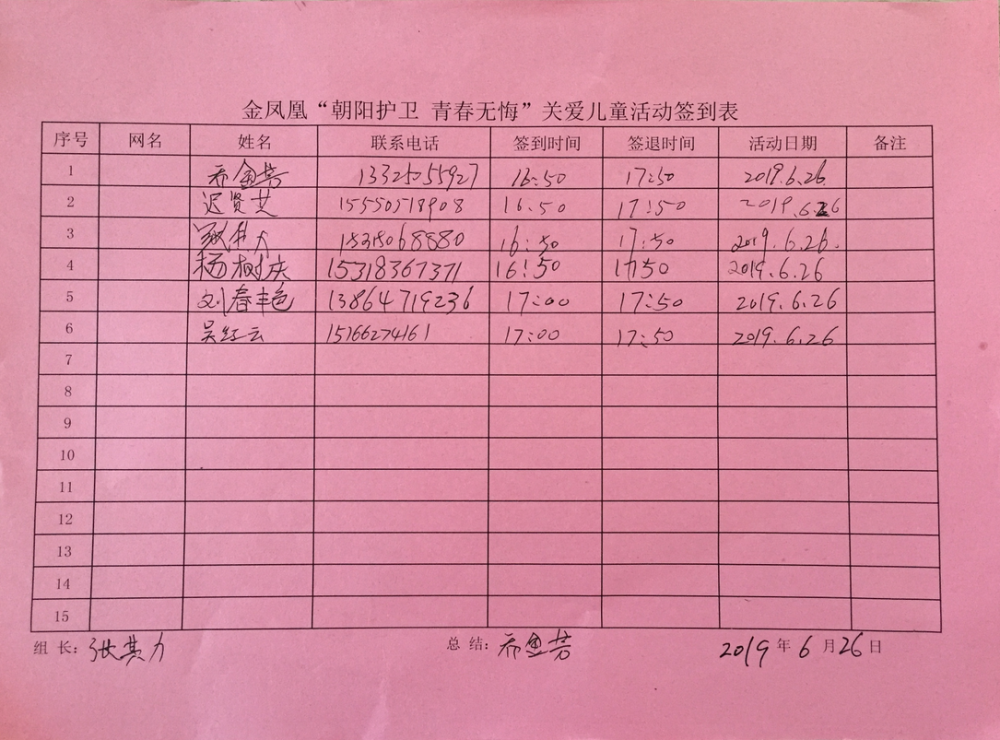 金凤凰“朝阳护卫 青春无悔”关爱儿童活动签到表
序号 网名 姓名 联系电话 签到时间 签退时间 活动日期 备注
1 乔金芳 13325055927 16:50 17:50 2019.6.26
2 迟贤艾 15550518908 16:50 17:50 2019.6.26
3 15318068880 16:50 17:50 2019.6.26.
4 杨树庆 15318367371 16:50 17:50 2019.6.26
5 刘春丰色 13864719236 17:00 17:50 2019.6.26
6 吴红云 15166274161 17:00 17:50 2019.6.26
7
8
9
10
11
12
13
14
15
组 长：张其力 总 结：乔金芳 2019 年 6 月 26 日